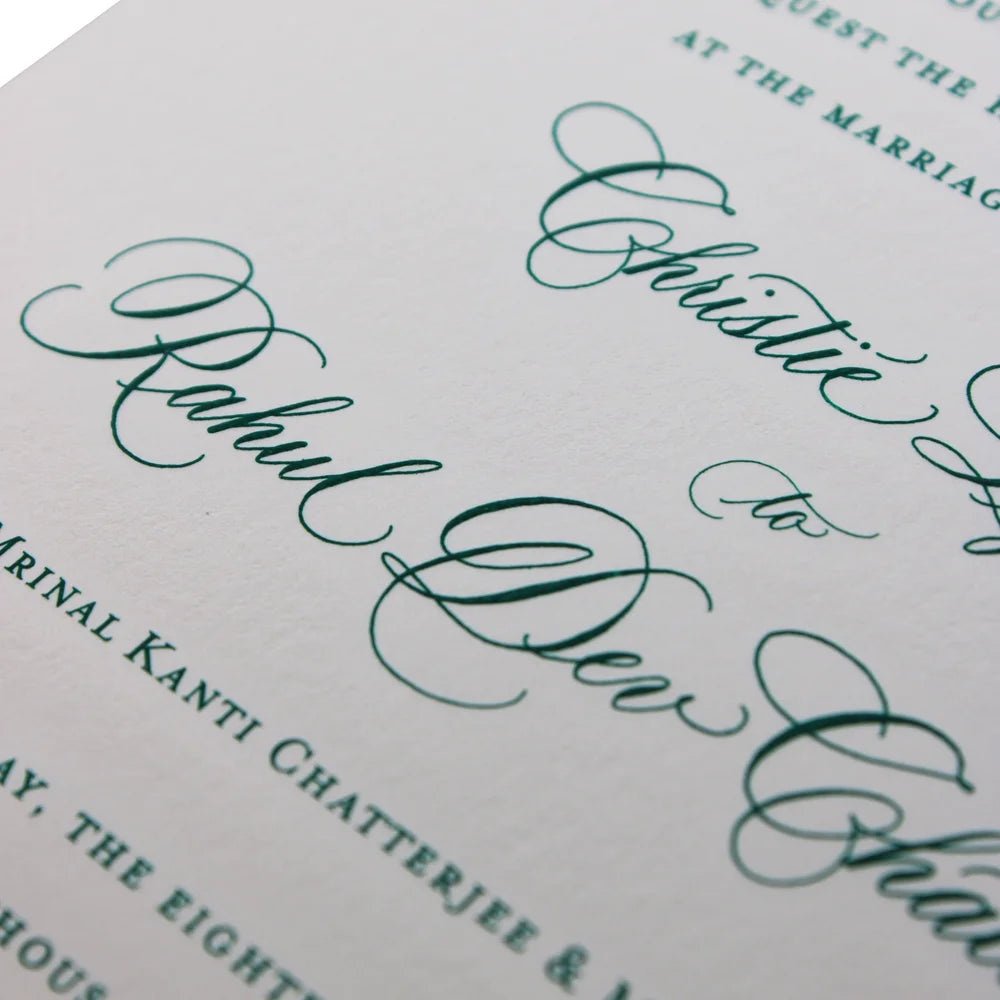 QUEST THE
AT THE MARRIAG
Christie
to
Rahul Dev Cha
MRINAL KANTI CHATTERJEE &
AY, THE EIGHT
HOUS